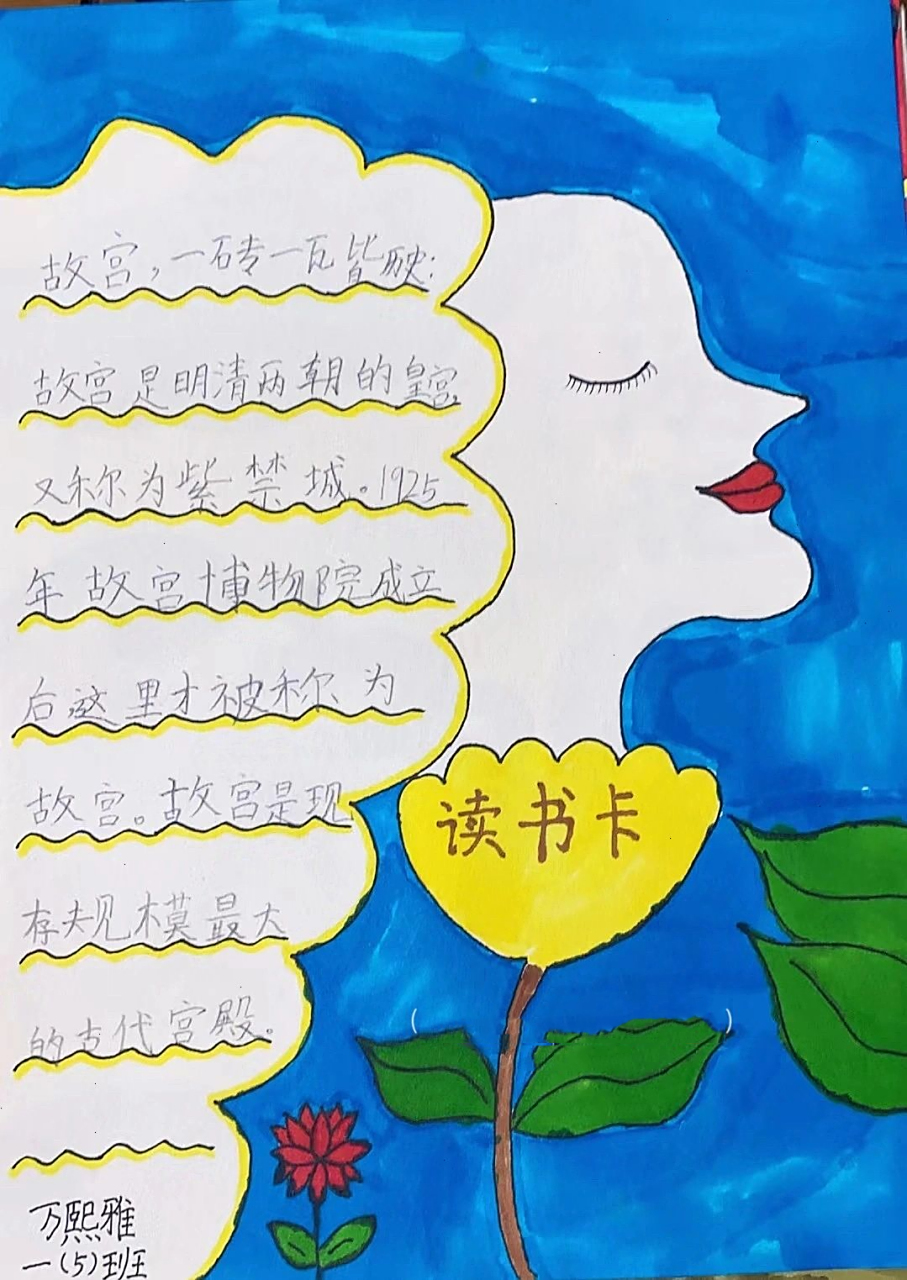 故宫，一砖一瓦皆历史：
故宫是明清两朝的皇宫,
又称为紫禁城。1925
年故宫博物院成立
后这里才被称为
故宫。故宫是现
存规模最大
的古代宫殿。
读书卡
万熙雅
一(5)班